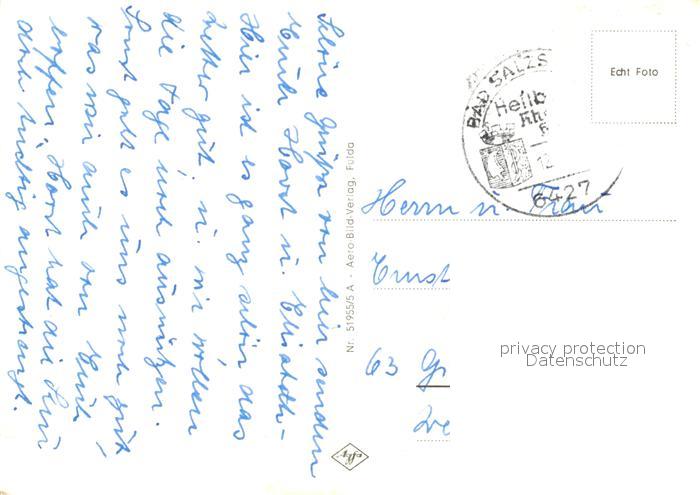 Schöne Grüße von hier senden
Euch Horst u. Elisabeth -
Hier ist es ganz schön das
Wetter gut, u. wir wollen
die Tage noch ausnützen.
Sonst geht es uns noch gut
was wir auch von Euch
hoffen. Horst hat die
dann tüchtig angestrengt.
Nr. 51955/5 A - Aero-Bild-Verlag, Fulda
Agfa
BAD SALZS
Heilb
Rh
6427
Echt Foto
Herrn u. Frau
Ernst
63 G
We
privacy protection
Datenschutz